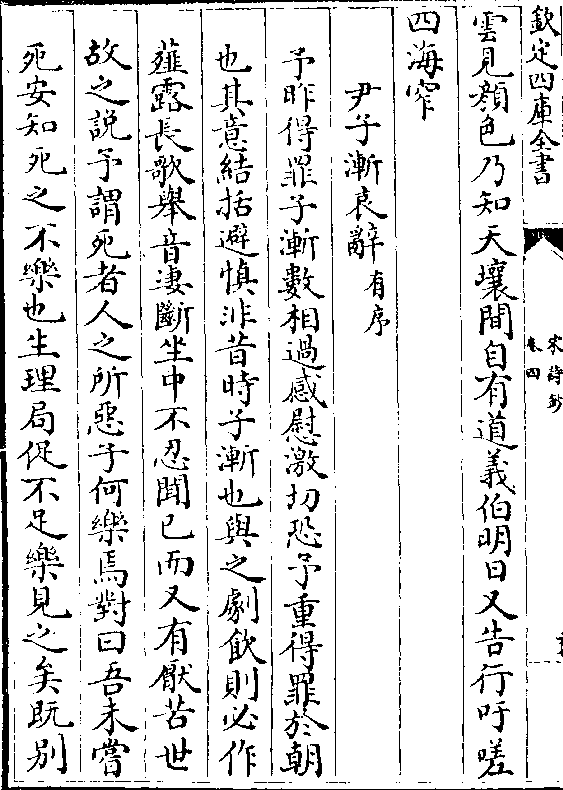 欽定四庫全書
宋詩鈔
卷四
雲見顔色乃知天壤間自有道義伯明日又告行吁嗟
四海窄
尹子漸哀辭有序
予昨得罪子漸數相過感慰激切恐予重得罪於朝
也其意結括避慎非昔時子漸也與之劇飲則必作
薤露長歌舉音凄斷坐中不忍聞已而又有厭苦世
故之說予謂死者人之所惡子何樂焉對曰吾未嘗
死安知死之不樂也生理局促不足樂見之矣既别